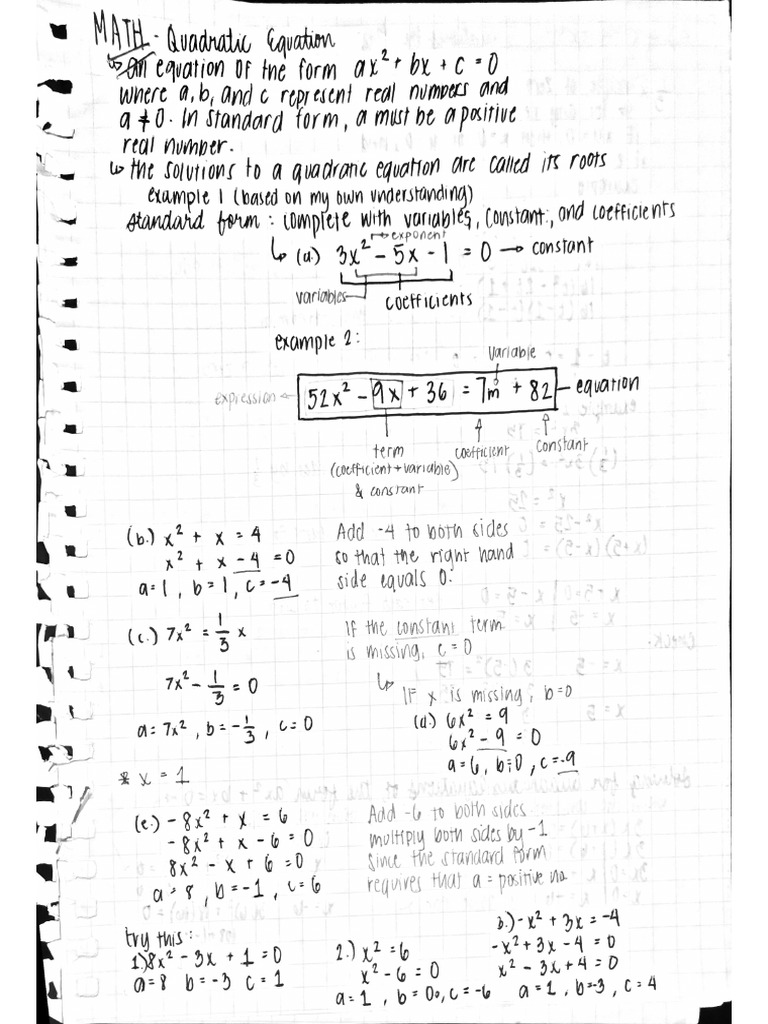 MATH - Quadratic Equation
↳ an equation of the form ax² + bx + c = 0
where a, b, and c represent real numbers and
a ≠ 0. In standard form, a must be a positive
real number.
↳ the solutions to a quadratic equation are called its roots
example 1 (based on my own understanding)
standard form : complete with variables, constant, and coefficients
→ exponent
↳ (a.) 3x² - 5x - 1 = 0 → constant
variables coefficients
example 2:
variable
expression ← 52x² - 9x + 36 = 7m + 82 - equation
term coefficient constant
(coefficient + variable)
& constant
(b.) x² + x = 4 Add -4 to both sides
x² + x - 4 = 0 so that the right hand
a = 1, b = 1, c = -4 side equals 0.
(c.) 7x² = 1/3 x If the constant term
is missing, c = 0
7x² - 1/3 = 0 ↳ If x is missing, b = 0
(d.) 6x² = 9
a = 7x², b = -1/3, c = 0 6x² - 9 = 0
a = 6, b = 0, c = -9
* x = 1
(e.) -8x² + x = 6 Add -6 to both sides
-8x² + x - 6 = 0 multiply both sides by -1
8x² - x + 6 = 0 since the standard form
a = 8, b = -1, c = 6 requires that a = positive no.
try this:
1.) 8x² - 3x + 1 = 0
a = 8 b = -3 c = 1
2.) x² = 6
x² - 6 = 0
a = 1, b = 0, c = -6
3.) -x² + 3x = -4
-x² + 3x - 4 = 0
x² - 3x + 4 = 0
a = 1, b = -3, c = 4